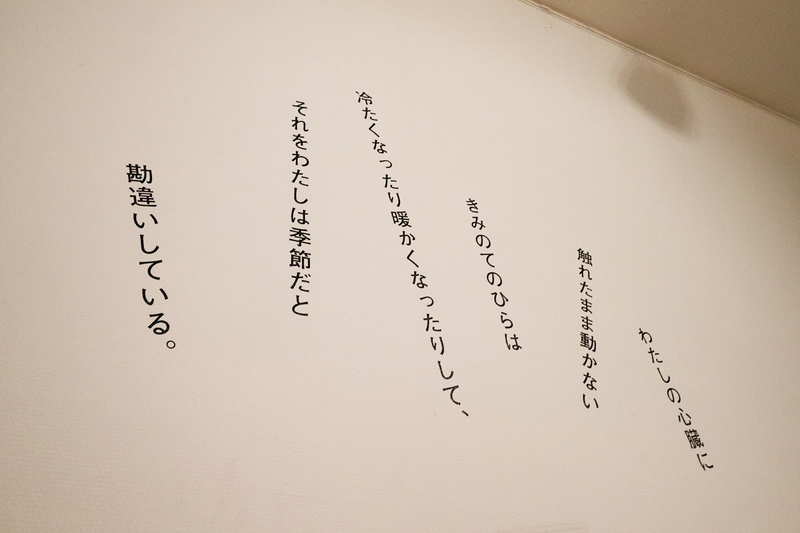 わたしの心臓に
触れたまま動かない
きみのてのひらは
冷たくなったり暖かくなったりして、
それをわたしは季節だと
勘違いしている。